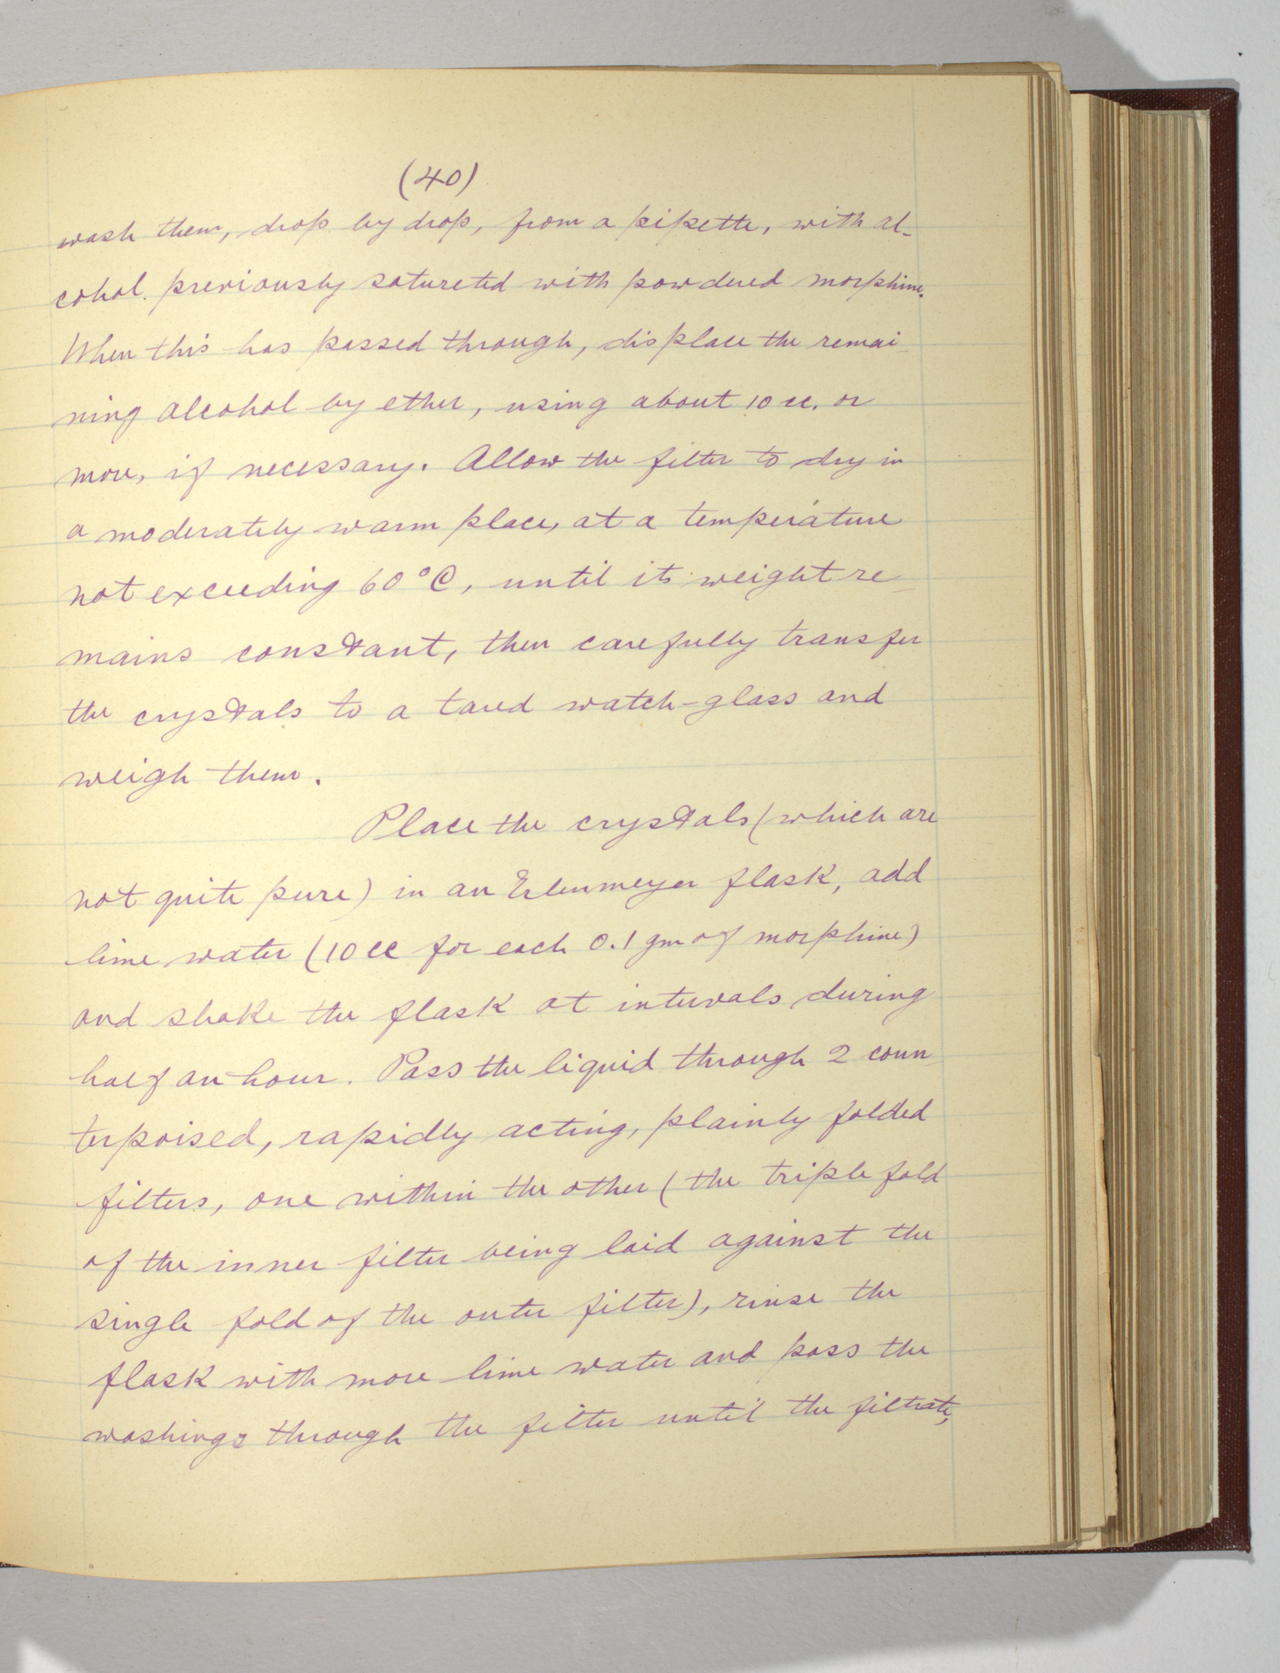 (40)
wash them, drop by drop, from a pipette, with al-
cohol. previously satureted with powdered morphine.
When this has passed through, displace the remai
ning alcohol by ether, using about 10 cc. or
more, if necessary. Allow the filter to dry in
a moderately warm place, at a temperature
not exceeding 60°C, until its weight re-
mains constant, then carefully transfer
the crystals to a tared watch-glass and
weigh them.
Place the crystals (which are
not quite pure) in an Erlenmeyer flask, add
lime water (10 cc for each 0.1 gm of morphine)
and shake the flask at intervals during
half an hour. Pass the liquid through 2 coun
terpoised, rapidly acting, plainly folded
filters, one within the other (the triple fold
of the inner filter being laid against the
single fold of the outer filter), rinse the
flask with more lime water and pass the
washings through the filter until the filtrate,